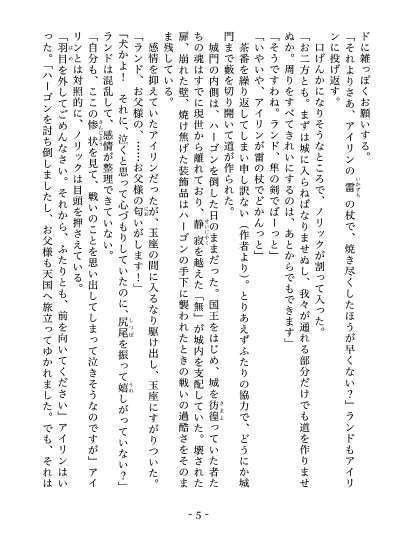 ドに雑っぽくお願いする。
「それよりさあ、アイリンの雷の杖で、焼き尽くしたほうが早くない？」ランドもアイリ
ンに投げ返す。
口げんかになりそうなところで、ノリックが割って入った。
「お二方とも。まずは城に入らねばなりませぬし、我々が通れる部分だけでも道を作りませ
ぬか。周りをすべてきれいにするのは、あとからでもできます」
「そうですわね。ランド、隼の剣でばーっと」
「いやいや、アイリンが雷の杖でどかんっと」
茶番を繰り返してしまい申し訳ない（作者より）。とりあえずふたりの協力で、どうにか城
門まで藪を切り開いて道が作られた。
城門の内側は、ハーゴンを倒した日のままだった。国王をはじめ、城を彷徨っていた者た
ちの魂はすでに現世から離れており、静寂を越えた「無」が城内を支配していた。壊された
扉、崩れた壁、焼け焦げた装飾品はハーゴンの手下に襲われたときの戦いの過酷さをそのま
ま残している。
感情を抑えていたアイリンだったが、玉座の間に入るなり駆け出し、玉座にすがりついた。
「ランド、お父様の、……お父様の匂いがします！」
「犬かよ！　それに、泣くと思って心づもりしていたのに、尻尾を振って嬉しがっていない？」
ランドは混乱して、感情が整理できていない。
「自分も、ここの惨状を見て、戦いのことを思い出してしまって泣きそうなのですが」アイ
リンとは対照的に、ノリックは目頭を押さえている。
「羽目を外してごめんなさい。それから、ふたりとも、前を向いてください」アイリンはい
った。「ハーゴンを討ち倒しましたし、お父様も天国へ旅立ってゆかれました。でも、それは
- 5 -